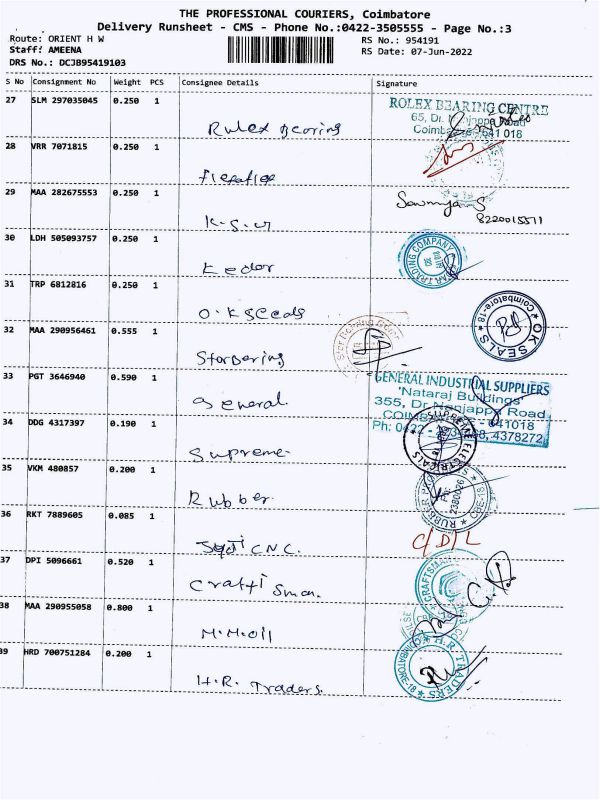 THE PROFESSIONAL COURIERS, Coimbatore
Delivery Runsheet - CMS - Phone No.:0422-3505555 - Page No.:3
Route: ORIENT H W
RS No.: 954191
Staff: AMEENA
RS Date: 07-Jun-2022
DRS No.: DCJB95419103
S No Consignment No Weight PCS Consignee Details Signature
27 SLM 297035045 0.250 1
ROLEX BEARING CENTRE
65, Dr. Nanjappa Road
Coimbatore-641 018
Rulex Bearing
28 VRR 7071815 0.250 1
29 MAA 282675553 0.250 1
Sowmya S
8220015511
K.S.
30 LDH 505093757 0.250 1
TRADING COMPANY
Kedar
31 TRP 6812816 0.250 1
O.K Seeds
OK SEALS
Coimbatore-18
32 MAA 290956461 0.555 1
Starbering
33 PGT 3646940 0.590 1
GENERAL INDUSTRIAL SUPPLIERS
'Nataraj Buildings'
355, Dr. Nanjappa Road
COIMBATORE - 641018
Ph: 0422 - 4378272
General.
34 DDG 4317397 0.190 1
SUPREME ELECTRICALS
Supreme
35 VKM 480857 0.200 1
RUBBER
2380026
Rubber
36 RKT 7889605 0.085 1
C/D/L
CNC.
37 DPI 5096661 0.520 1
CRAFTSMAN
Craftisman.
38 MAA 290955058 0.800 1
M.M.oil
39 HRD 700751284 0.200 1
H.R. TRADERS
COIMBATORE-18
H.R. Traders.